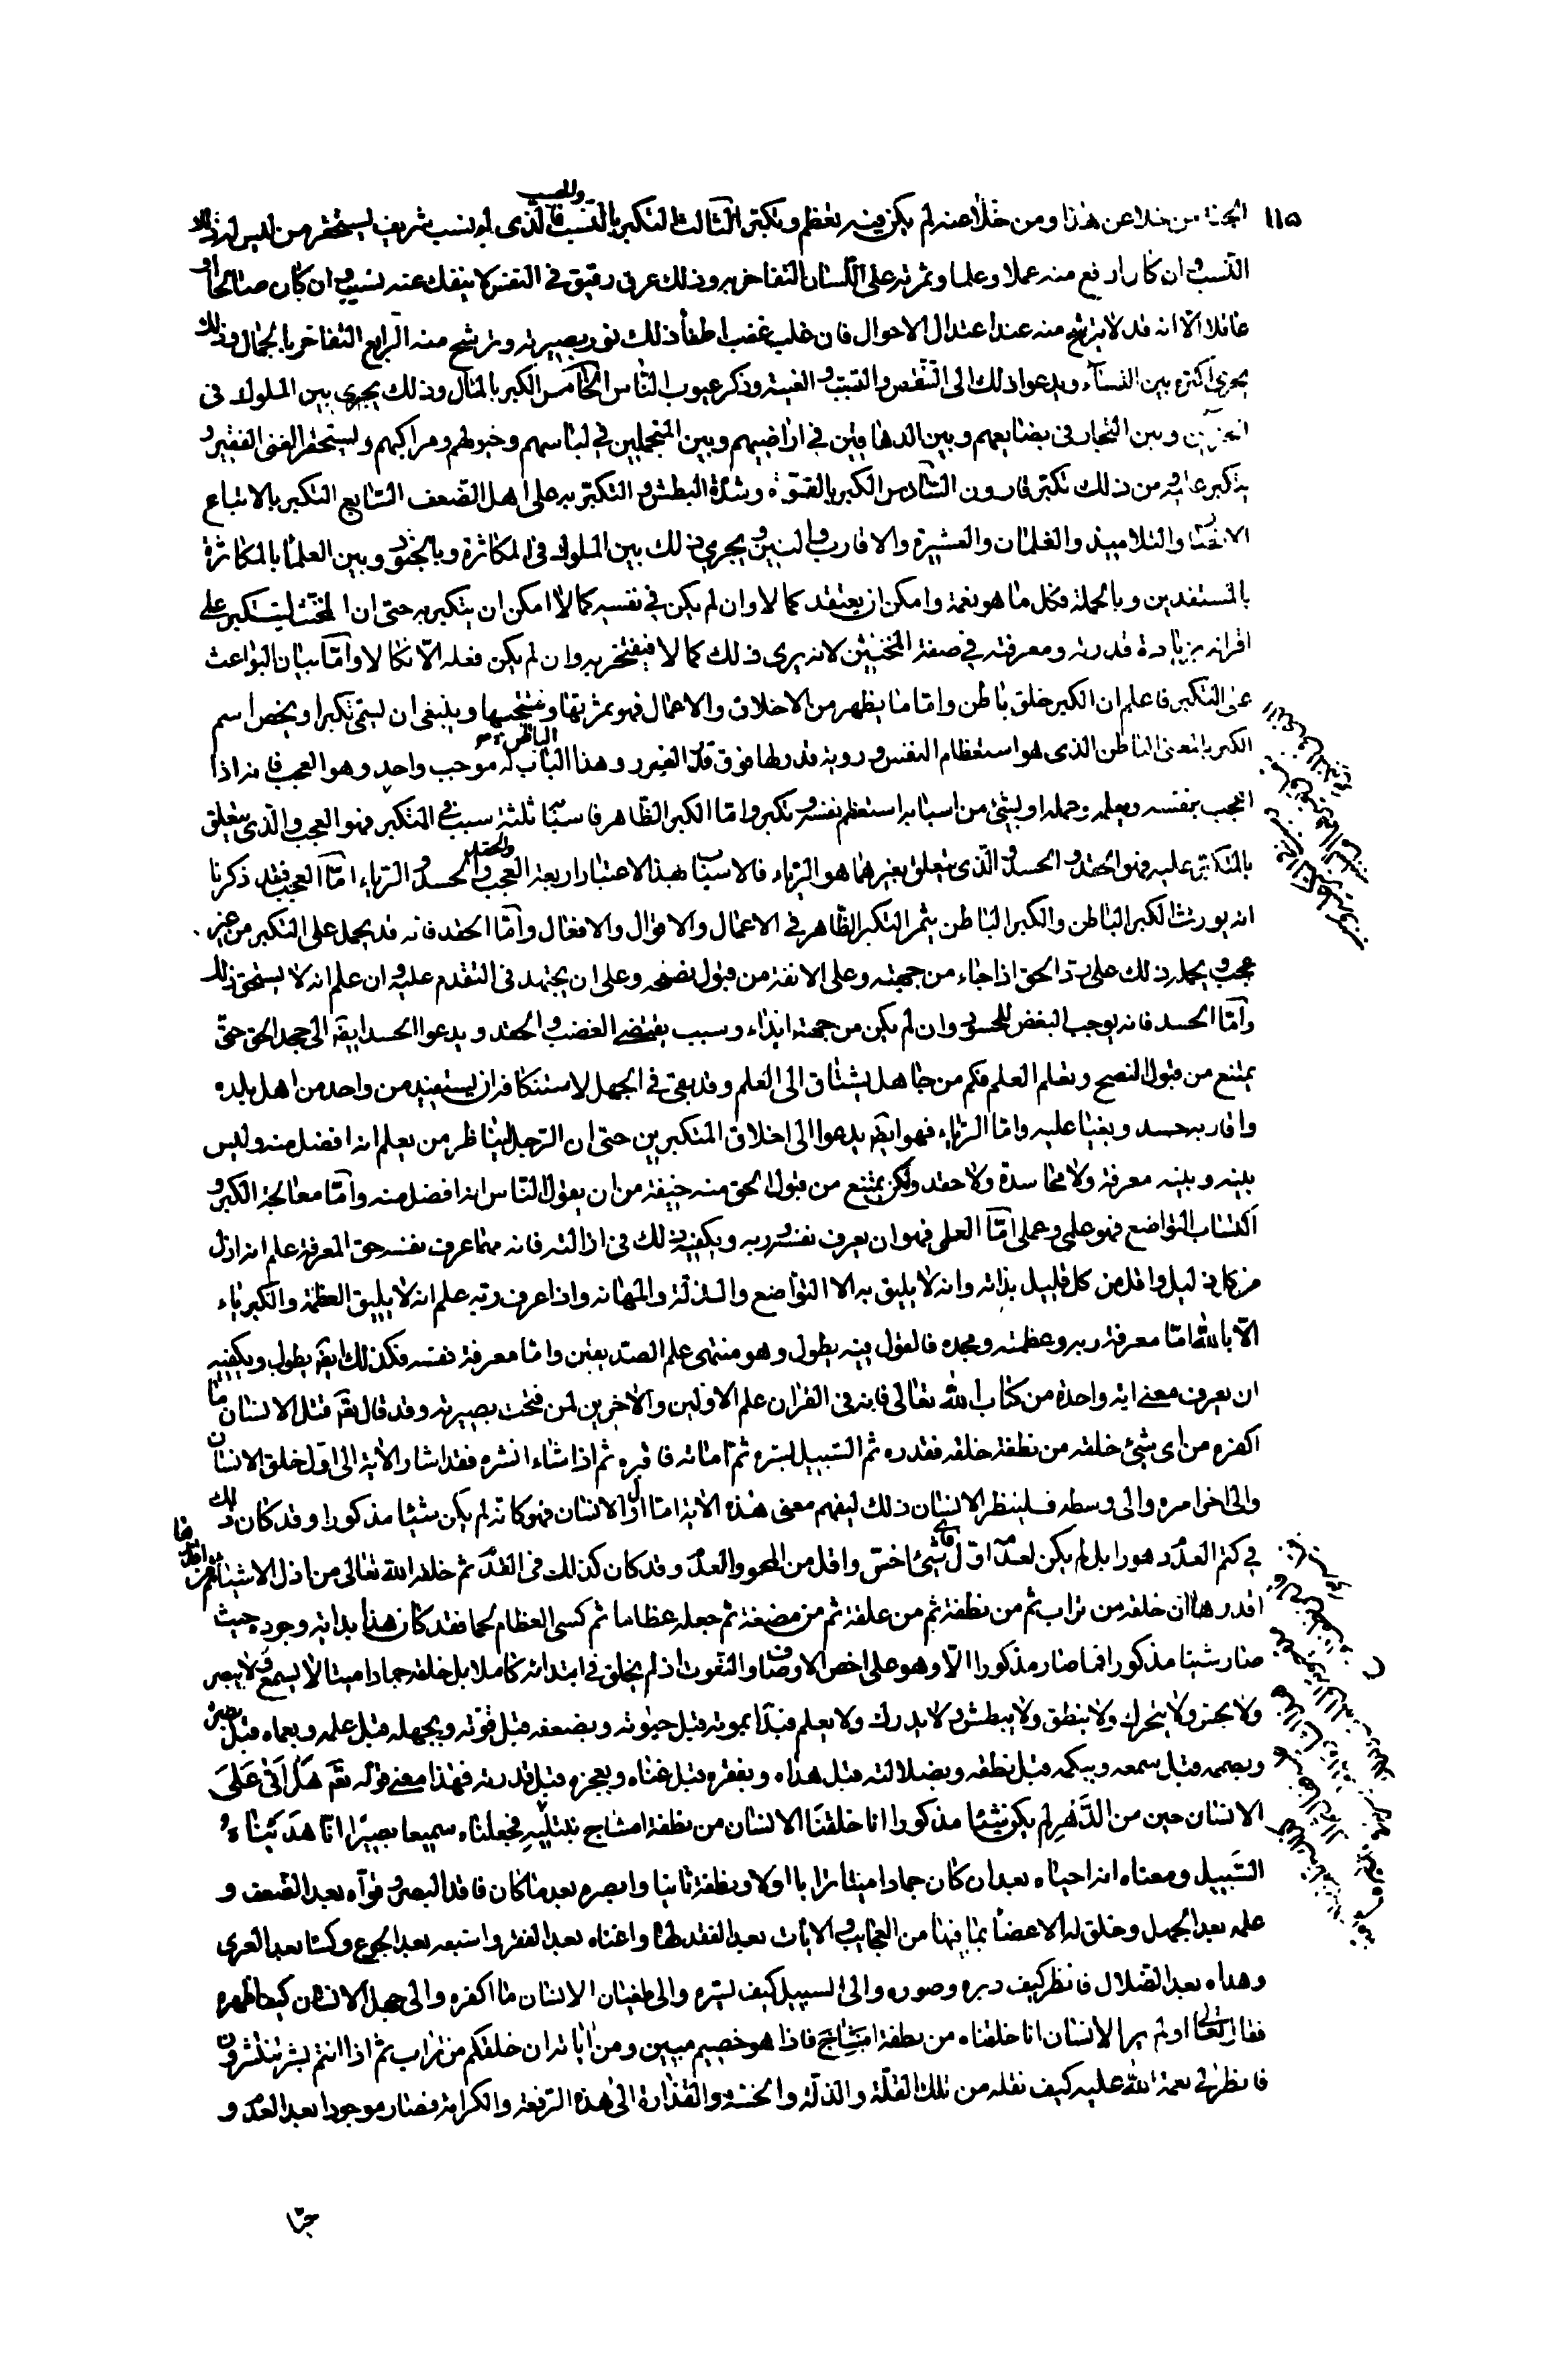 ١١٥
من خلا عن هذا ومن خلا عنه لم يكن فيه تعظم وتكبر الثالث التكبر بالنسب والحسب فالذى له نسب شريف يستحقر من ليس له ذلك
النسب وان كان ارفع منه عملا وعلما وثمرته على اللسان التفاخر به وذلك عرق دقيق فى النفس لا ينفك عنه نسيب وان كان صالحا او
عاقلا الّا انه قد لا يترشح منه عند اعتدال الاحوال فان غلبه غضب اطفأ ذلك نور بصيرته وترشح منه الرابع التفاخر بالجمال وذلك
يجرى اكثره بين النسآء ويدعوا ذلك الى التنقص والثلب والغيبة وذكر عيوب الناس الخامس الكبر بالمال وذلك يجرى بين الملوك فى
وبين التجار فى بضايعهم وبين الدهاقين فى اراضيهم وبين المتجملين فى لباسهم وخيولهم ومراكبهم ويستحقر الغنى الفقير و
يتكبر عليه ومن ذلك تكبر قارون السّادس الكبر بالقوّة وشدّة البطش والتكبّر به على اهل الضعف السّابع التكبر بالاتباع
والتلاميذ والغلمان والعشيرة والاقارب والبنين ويجرى ذلك بين الملوك فى المكاثرة وبالجنود وبين العلما بالمكاثرة
بالمستفدين وبالجملة فكل ما هو نعمة وامكن ان يعتقد كمالا وان لم يكن فى نفسه كمالا امكن ان يتكبر به حتى ان المخنّث ليتكبر على
اقرانه بزيادة قدرته ومعرفته فى صفة المخنثين لانه يرى ذلك كمالا فيفتخر به وان لم يكن فعله الّا نكالا وامّا بيان البواعث
على التكبر فاعلم ان الكبر خلق باطن وامّا ما يظهر من الاخلاق والاعمال فهو ثمرتها ونتيجتها وينبغى ان تسمى تكبرا ويخص اسم
الكبر بالمعنى الباطن الذى هو استعظام النفس ورؤية قدرها فوق قدر الغير وهذا الباب الباطن له موجب واحد وهو العجب فانه اذا
اعجب بنفسه وبعلمه وعمله او بشئ من اسبابه استعظم نفسه وتكبر وامّا الكبر الظاهر فاسبابه ثلثة سبب فى المتكبر فهو العجب والذى يتعلق
بالمتكبر عليه فهو الحقد والحسد والّذى يتعلق بغيرهما هو الرّياء فالاسباب بهذا الاعتبار اربعة العجب والحقد والحسد والرّياء امّا العجب فقد ذكرنا
انه يورث الكبر الباطن والكبر الباطن يثمر التكبر الظاهر فى الاعمال والاقوال والافعال وامّا الحقد فانه قد يحمل على التكبر من غير
عجب ويحمله ذلك على ردّ الحق اذا جاء من جهته وعلى الانفة من قبول نصحه وعلى ان يجتهد فى التقدم عليه وان علم انه لا يستحق ذلك
وامّا الحسد فانه يوجب البغض للمحسود وان لم يكن من جهته ايذاء وسبب يقتضى الغضب والحقد ويدعوا الحسد ايضا الى جحد الحق حتى
يمتنع من قبول النصح وتعلم العلم فكم من جاهل يشتاق الى العلم وقد بقى فى الجهل لاستنكافه ان يستفيد من واحد من اهل بلده
واقاربه حسدا وبغيا عليه وامّا الرّياء فهو ايضا يدعوا الى اخلاق المتكبرين حتى ان الرّجل ليناظر من يعلم انه افضل منه وليس
بينه وبينه معرفة ولا محاسدة ولا حقد ولكن يمتنع من قبول الحق منه خيفة من ان يقول الناس انه افضل منه وامّا معالجة الكبر و
اكتساب التواضع فهو علمى وعملى امّا العلمى فهو ان يعرف نفسه وربه ويكفيه ذلك فى ازالته فانه مهما عرف نفسه حق المعرفة علم انه اذل
من كل ذليل واقل من كل قليل بذاته وانه لا يليق به الا التواضع والذلّة والمهانة واذا عرف ربّه علم انه لا يليق العظمة والكبرياء
الّا بالله امّا معرفة ربه وعظمته ومجده فالقول فيه يطول وهو منتهى علم الصدّيقين وامّا معرفة نفسه فكذلك ايضا يطول ويكفيه
ان يعرف معنى اية واحدة من كتاب الله تعالى فانه فى القران علم الاولين والاخرين لمن فتحت بصيرته وقد قال تعالى قتل الانسان ما
اكفره من اى شئ خلقه من نطفة خلقه فقدره ثم السّبيل يسّره ثم اماته فاقبره ثم اذا شاء انشره فقد اشار الاية الى اول خلق الانسان
والى اخر امره والى وسطه فلينظر الانسان ذلك ليفهم معنى هذه الاية امّا اول الانسان فهو كانه لم يكن شيئا مذكورا وقد كان ذلك
فى كتم العدم دهورا بل لم يكن لعدمه اوّل فاى شئ اخسّ واقل من المحو والعدم وقد كان كذلك فى القدم ثم خلقه الله تعالى من اذل الاشياء ثم من
اقذرها اذ خلقه من تراب ثم من نطفة ثم من علقة ثم من مضغة ثم جعله عظاما ثم كسى العظام لحما فقد كان هذا بداية وجوده حيث
صار شيئا مذكورا فما صار مذكورا الّا وهو على اخس الاوصاف والنعوت اذ لم يخلق فى ابتدائه كاملا بل خلقه جمادا ميتا لا يسمع ولا يبصر
ولا يحس ولا يتحرك ولا ينطق ولا يبطش ولا يدرك ولا يعلم فبدأ بموته قبل حيوته وبضعفه قبل قوّته وبجهله قبل علمه وبعماه قبل بصره
وبصممه قبل سمعه وببكمه قبل نطقه وبضلالته قبل هداه وبفقره قبل غناه وبعجزه قبل قدرته فهذا معنى قوله تعالى هل اتى على
الانسان حين من الدّهر لم يكن شيئا مذكورا انا خلقنا الانسان من نطفة امشاج نبتليه فجعلناه سميعا بصيرا انّا هديناه
السّبيل ومعناه انه احياه بعد ان كان جمادا ميتا ترابا اولا ونطفة ثانيا وابصره بعد ما كان فاقد البصر وقوّاه بعد الضعف و
علمه بعد الجهل وخلق له الاعضا بما فيها من العجايب والايات بعد الفقد لها واغناه بعد الفقر واشبعه بعد الجوع وكساه بعد العرى
وهداه بعد الضلال فانظر كيف دبره وصوره والى السبيل كيف يسّره والى طغيان الانسان ما اكفره والى جهل الانسان كيف اظهره
فقال تعالى اولم ير الانسان انا خلقناه من نطفة امشاج فاذا هو خصيم مبين ومن اياته ان خلقكم من تراب ثم اذا انتم بشر تنتشرون
فانظر الى نعمة الله عليه كيف نقله من تلك القلّة والذلّة والخسّة والقذارة الى هذه الرّفعة والكرامة فصار موجودا بعد العدم و